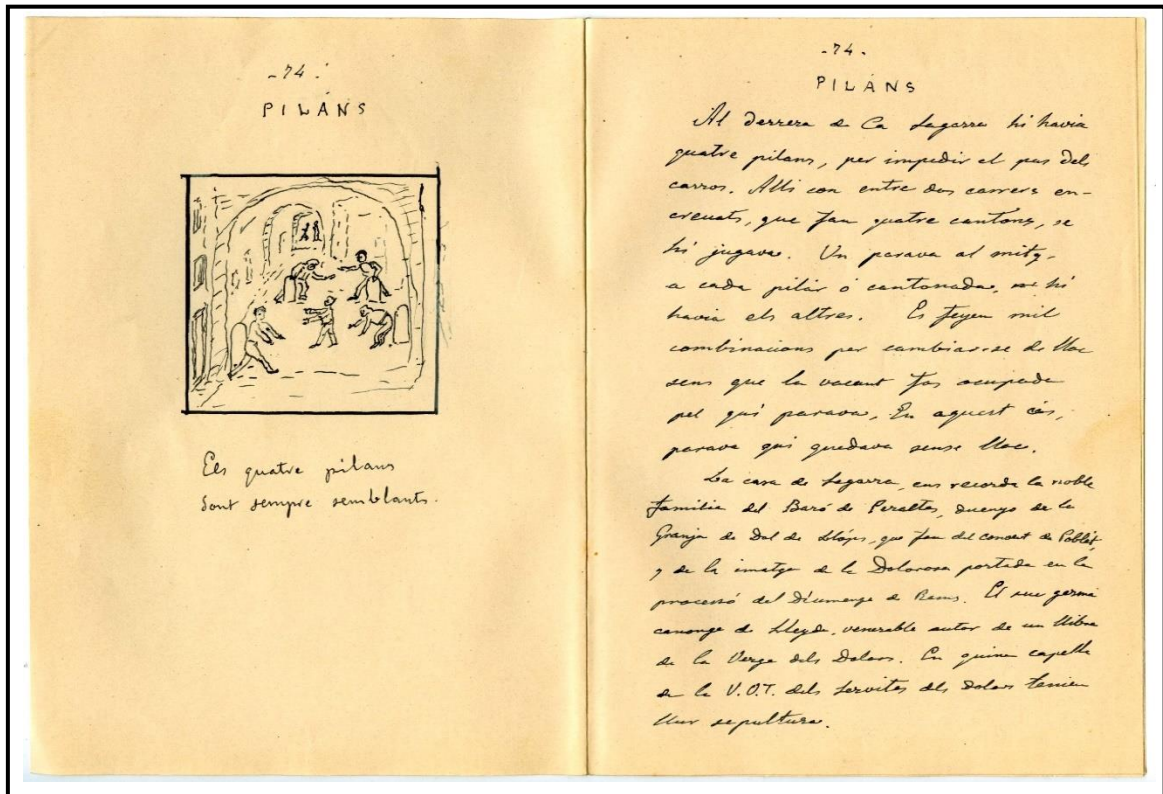 -74.
PILÁNS
Els quatre pilans
Sont sempre semblants.
-74.
PILÁNS
Al derrera de Ca Sagarra hi havia
quatre pilans, per impedir el pas dels
carros. Allí con entre dos carrers en-
creuats, que fan quatre cantons, se
hi jugava. Un parava al mitg,
a cada pilár ó cantonada, hi
havia els altres. Es feyen mil
combinacions per cambiar-se de lloc
sens que la vacant fos ocupada
pel qui parava. En aquest cás,
parava qui quedava sense lloc.
La casa de Sagarra, ens recorda la noble
familia del Baró de Peraltes, duenyo de la
Granja de Dal de Llóps, que fou del convent de Poblet,
y de la imatge de la Dolorosa portada en la
processó del Diumenge de Rams. El seu germá
canonge de Lleyda, venerable autor de un llibre
de la Verge dels Dolors. En quina capella
de la V.O.T. dels Servites dels Dolors tenien
llur sepultura.